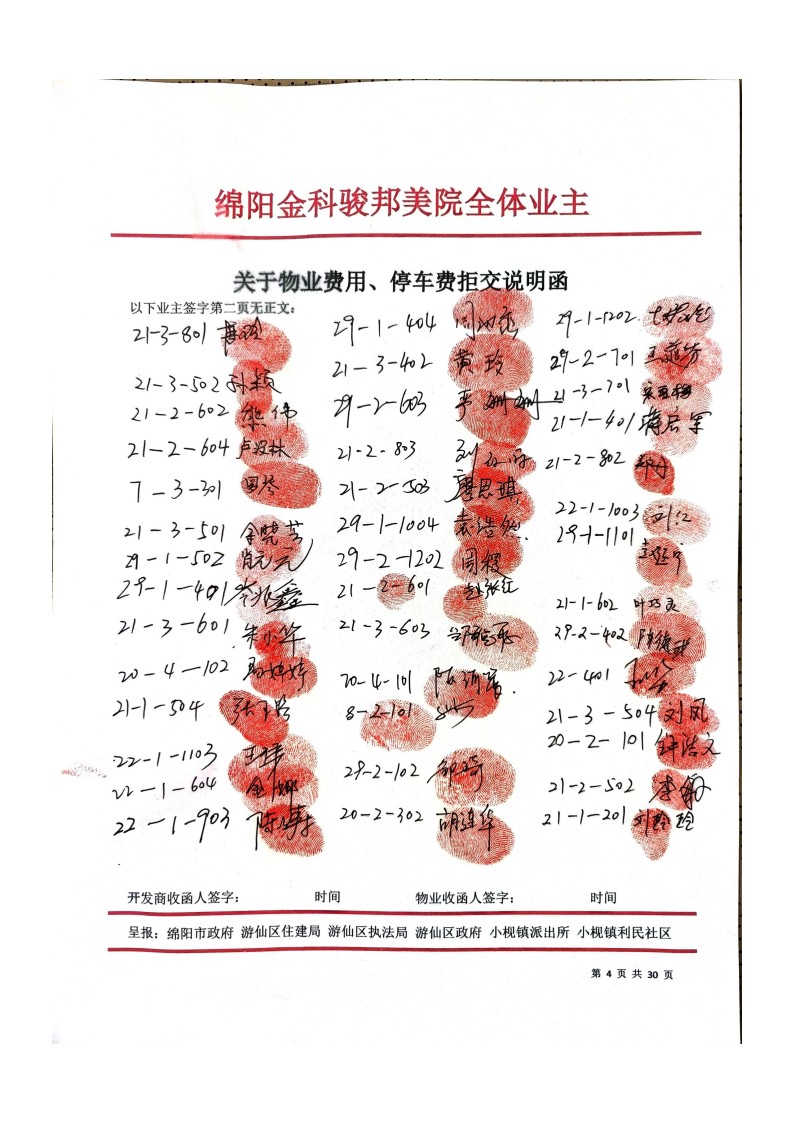 绵阳金科骏邦美院全体业主
关于物业费用、停车费拒交说明函
以下业主签字第二页无正文:
21-3-801
29-1-404
29-1-1202
21-3-402 黄玲
29-2-701
21-3-502 孙颖
29-2-603
21-3-701
21-2-602 熊伟
21-1-401 蒋启军
21-2-604
21-2-803
21-2-802
7-3-301 田琴
21-2-503 廖思琪
22-1-1003 刘红
21-3-501 金晓芳
29-1-1004 袁浩然
29-1-1101
29-1-502 肖元元
29-2-1202 周稷
29-1-401
21-2-601
21-1-602 叶巧灵
21-3-601 朱小华
21-3-603
29-2-402
20-4-102
20-4-101
22-401
21-1-504
8-2-101
21-3-504 刘凤
20-2-101 钟浩文
22-1-1103 王瑛
29-2-102 邹琦
22-1-604 金娜
21-2-502 李敏
22-1-903
20-2-302 胡连华
21-1-201 刘玲玲
开发商收函人签字: 时间 物业收函人签字: 时间
呈报: 绵阳市政府 游仙区住建局 游仙区执法局 游仙区政府 小枧镇派出所 小枧镇利民社区
第 4 页 共 30 页